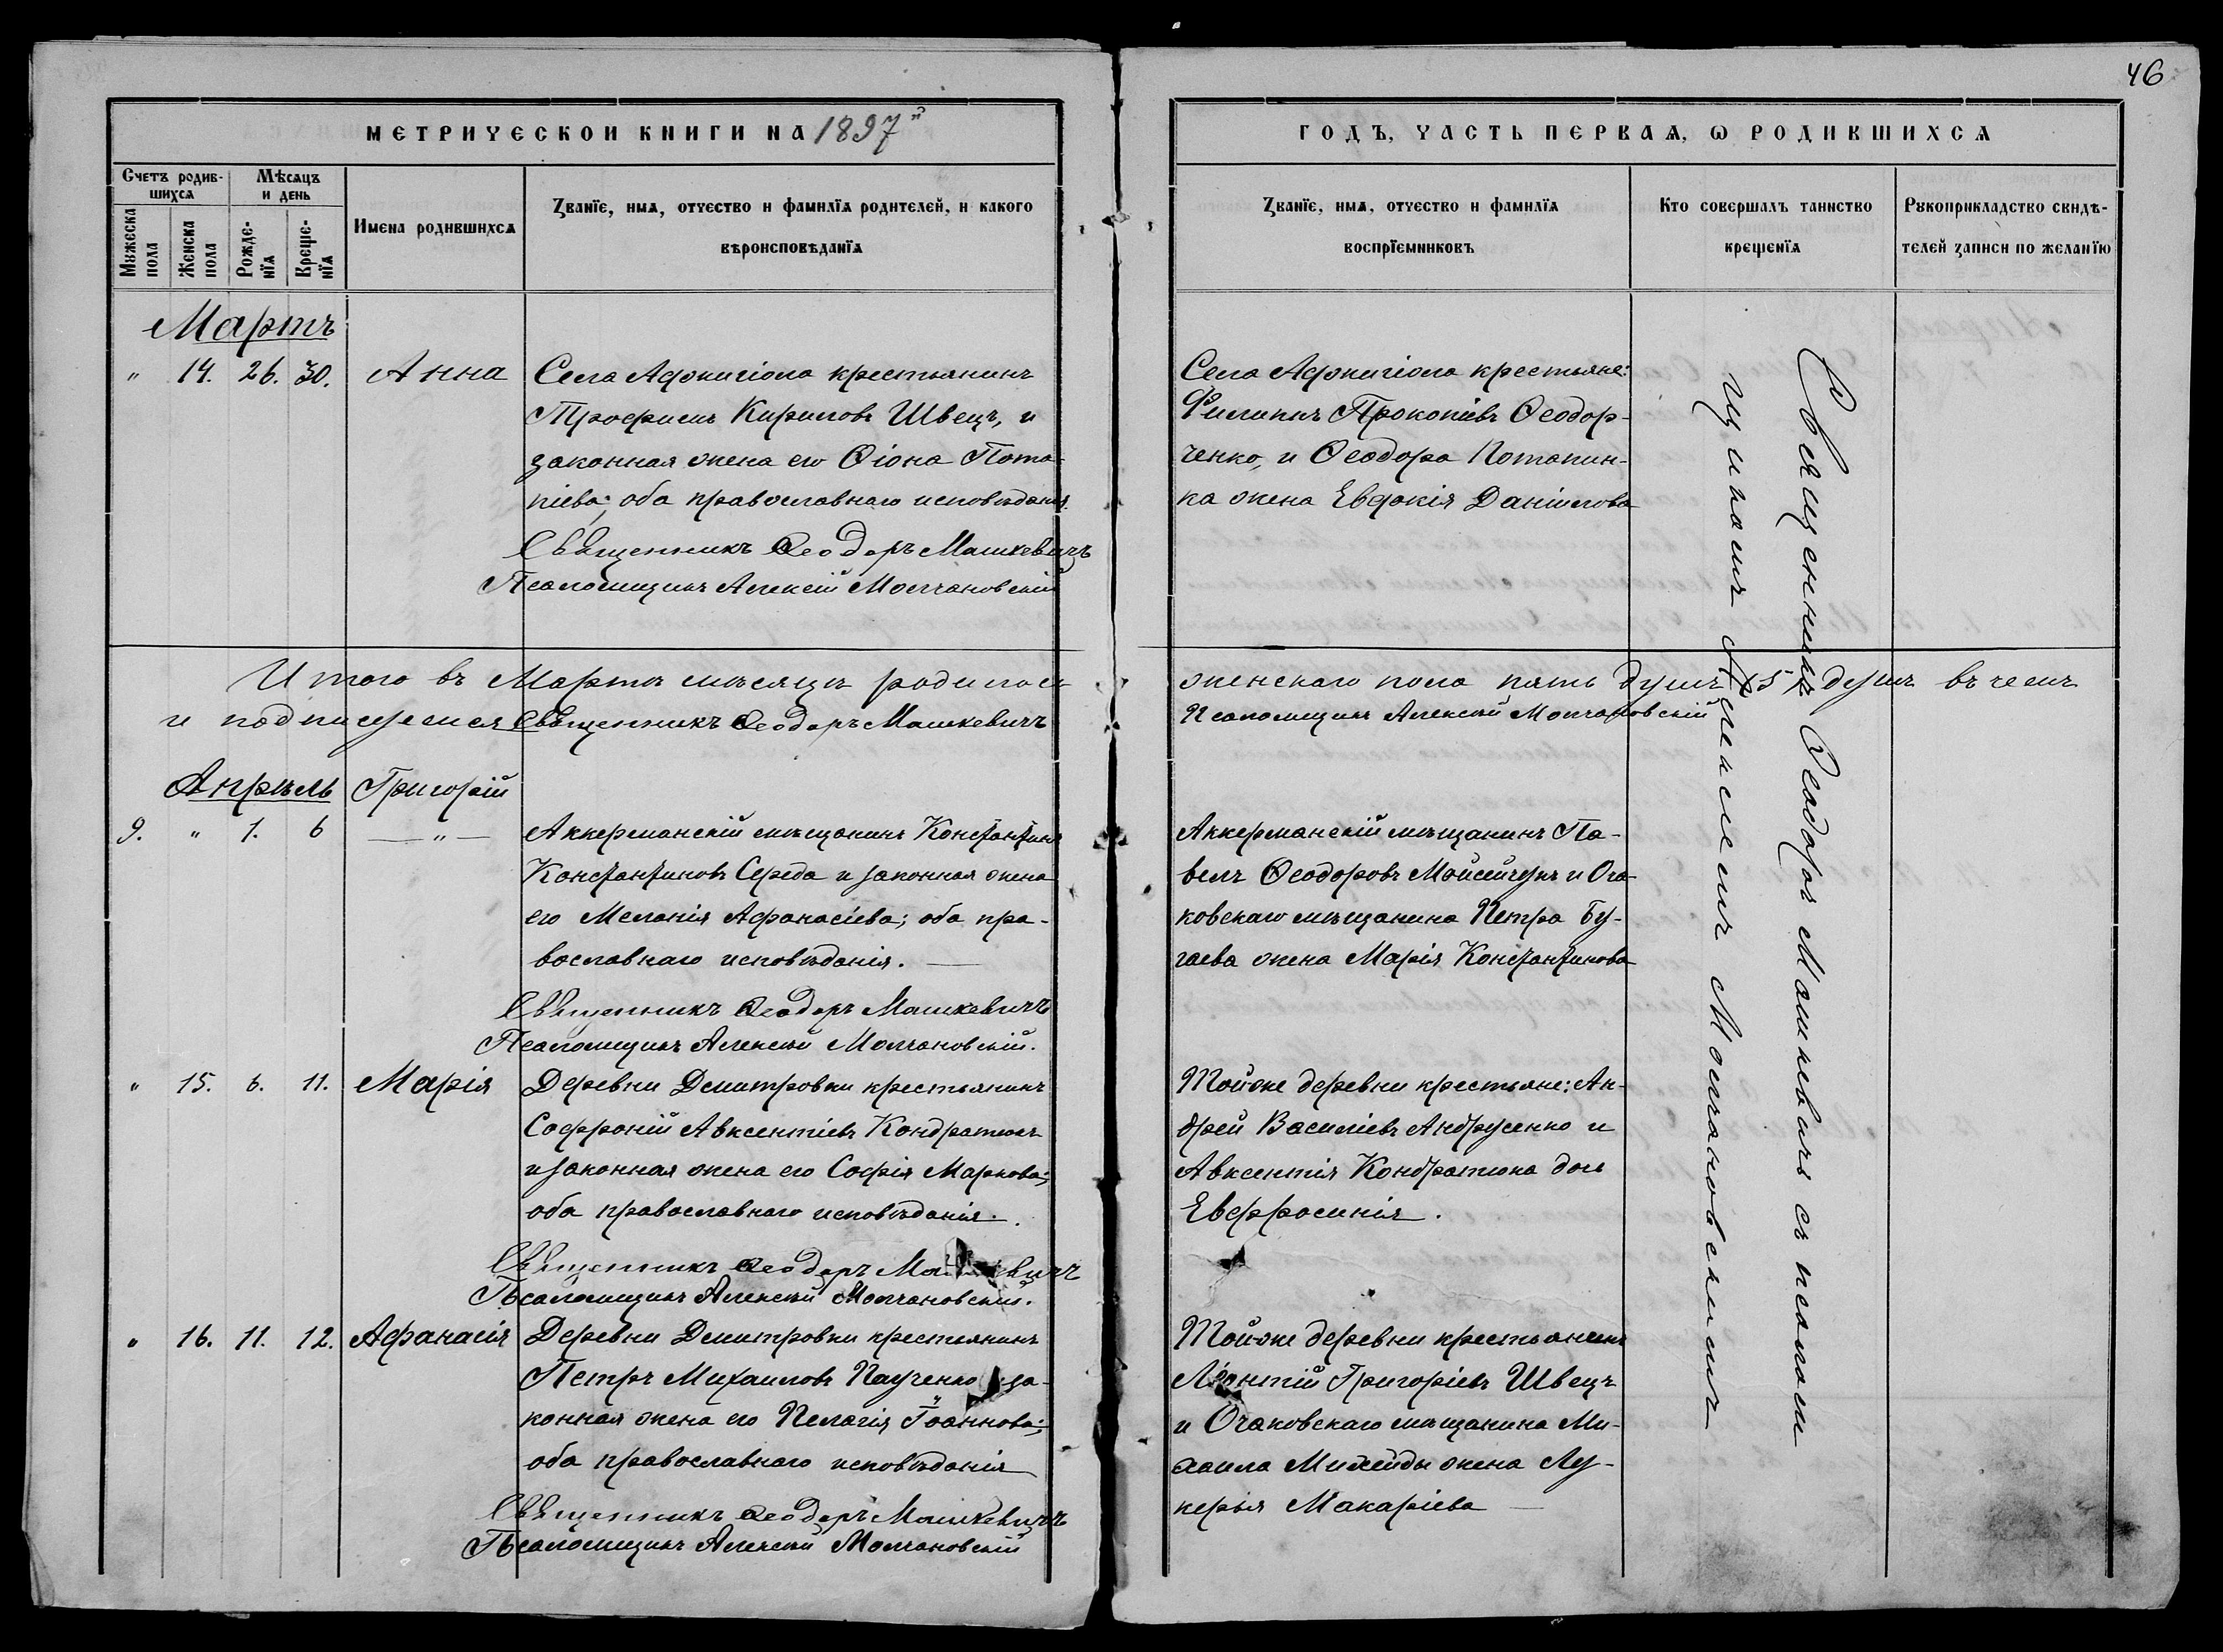 46
МЕТРИЧЕСКОЙ КНИГИ НА 1897й
ГОДЪ, ЧАСТЬ ПЕРВАЯ, Ѡ РОДИВШИХСЯ
Счетъ родив-
шихся
Мѣсяцъ
и день
Мужеска
пола
Женска
пола
Рожде-
нїя
Креще-
нїя
Имена родившихся
Званїе, имя, отчество и фамилїя родителей, и какого
вѣроисповѣданїя
Званїе, имя, отчество и фамилїя
воспрїемниковъ
Кто совершалъ таинство
крещенїя
Рукоприкладство свидѣ-
телей записи по желанїю
Мартъ
" 14. 26. 30. Анна
Села Аджигіола крестьянинъ
Трофимъ Кириловъ Швецъ, и
законная жена его Ѳіона Пота-
піева; оба православнаго исповѣданія.
Священникъ Ѳеодоръ Машкевичъ
Псаломщикъ Алексій Молчановскій
Села Аджигіола крестьяне:
Филиппъ Прокопіевъ Ѳеодор-
ченко, и Ѳеодора Потапин-
ка жена Евдокія Даніилова
Итого въ Мартѣ мѣсяцѣ родилось женскаго пола пять душъ /5/ душъ въ чемъ
и подписуемся Священникъ Ѳеодоръ Машкевичъ Псаломщикъ Алексій Молчановскій
Апрѣль Григорій
9. " 1. 6 — " —
Аккерманскій мѣщанинъ Константинъ
Константиновъ Середа и законная жена
его Меланія Афанасіева; оба пра-
вославнаго исповѣданія.
Священникъ Ѳеодоръ Машкевичъ
Псаломщикъ Алексій Молчановскій.
Аккерманскій мѣщанинъ Па-
велъ Ѳеодоровъ Мойсейчукъ и Оча-
ковскаго мѣщанина Петра Бу-
гаева жена Марія Константинова
" 15. 6. 11. Марія
Деревни Демитровки крестьянинъ
Софроній Авксентіевъ Кондратюкъ
и законная жена его Софія Маркова;
оба православнаго исповѣданія.
Священникъ Ѳеодоръ Машкевичъ
Псаломщикъ Алексій Молчановскій.
Тойже деревни крестьяне: Ан-
дрей Василіевъ Андрусенко и
Авксентія Кондратюка дочь
Евфросинія.
" 16. 11. 12. Афанасія
Деревни Демитровки крестьянинъ
Петръ Михаиловъ Паученко и за-
конная жена его Пелагія Іоаннова;
оба православнаго исповѣданія
Священникъ Ѳеодоръ Машкевичъ
Псаломщикъ Алексій Молчановскій
Тойже деревни крестьянинъ
Леонтій Григоріевъ Швецъ
и Очаковскаго мѣщанина Ми-
хаила жена Лу-
керья Макаріева
Священникъ Ѳеодоръ Машкевичъ съ псалом-
щикомъ Алексіемъ Молчановскимъ